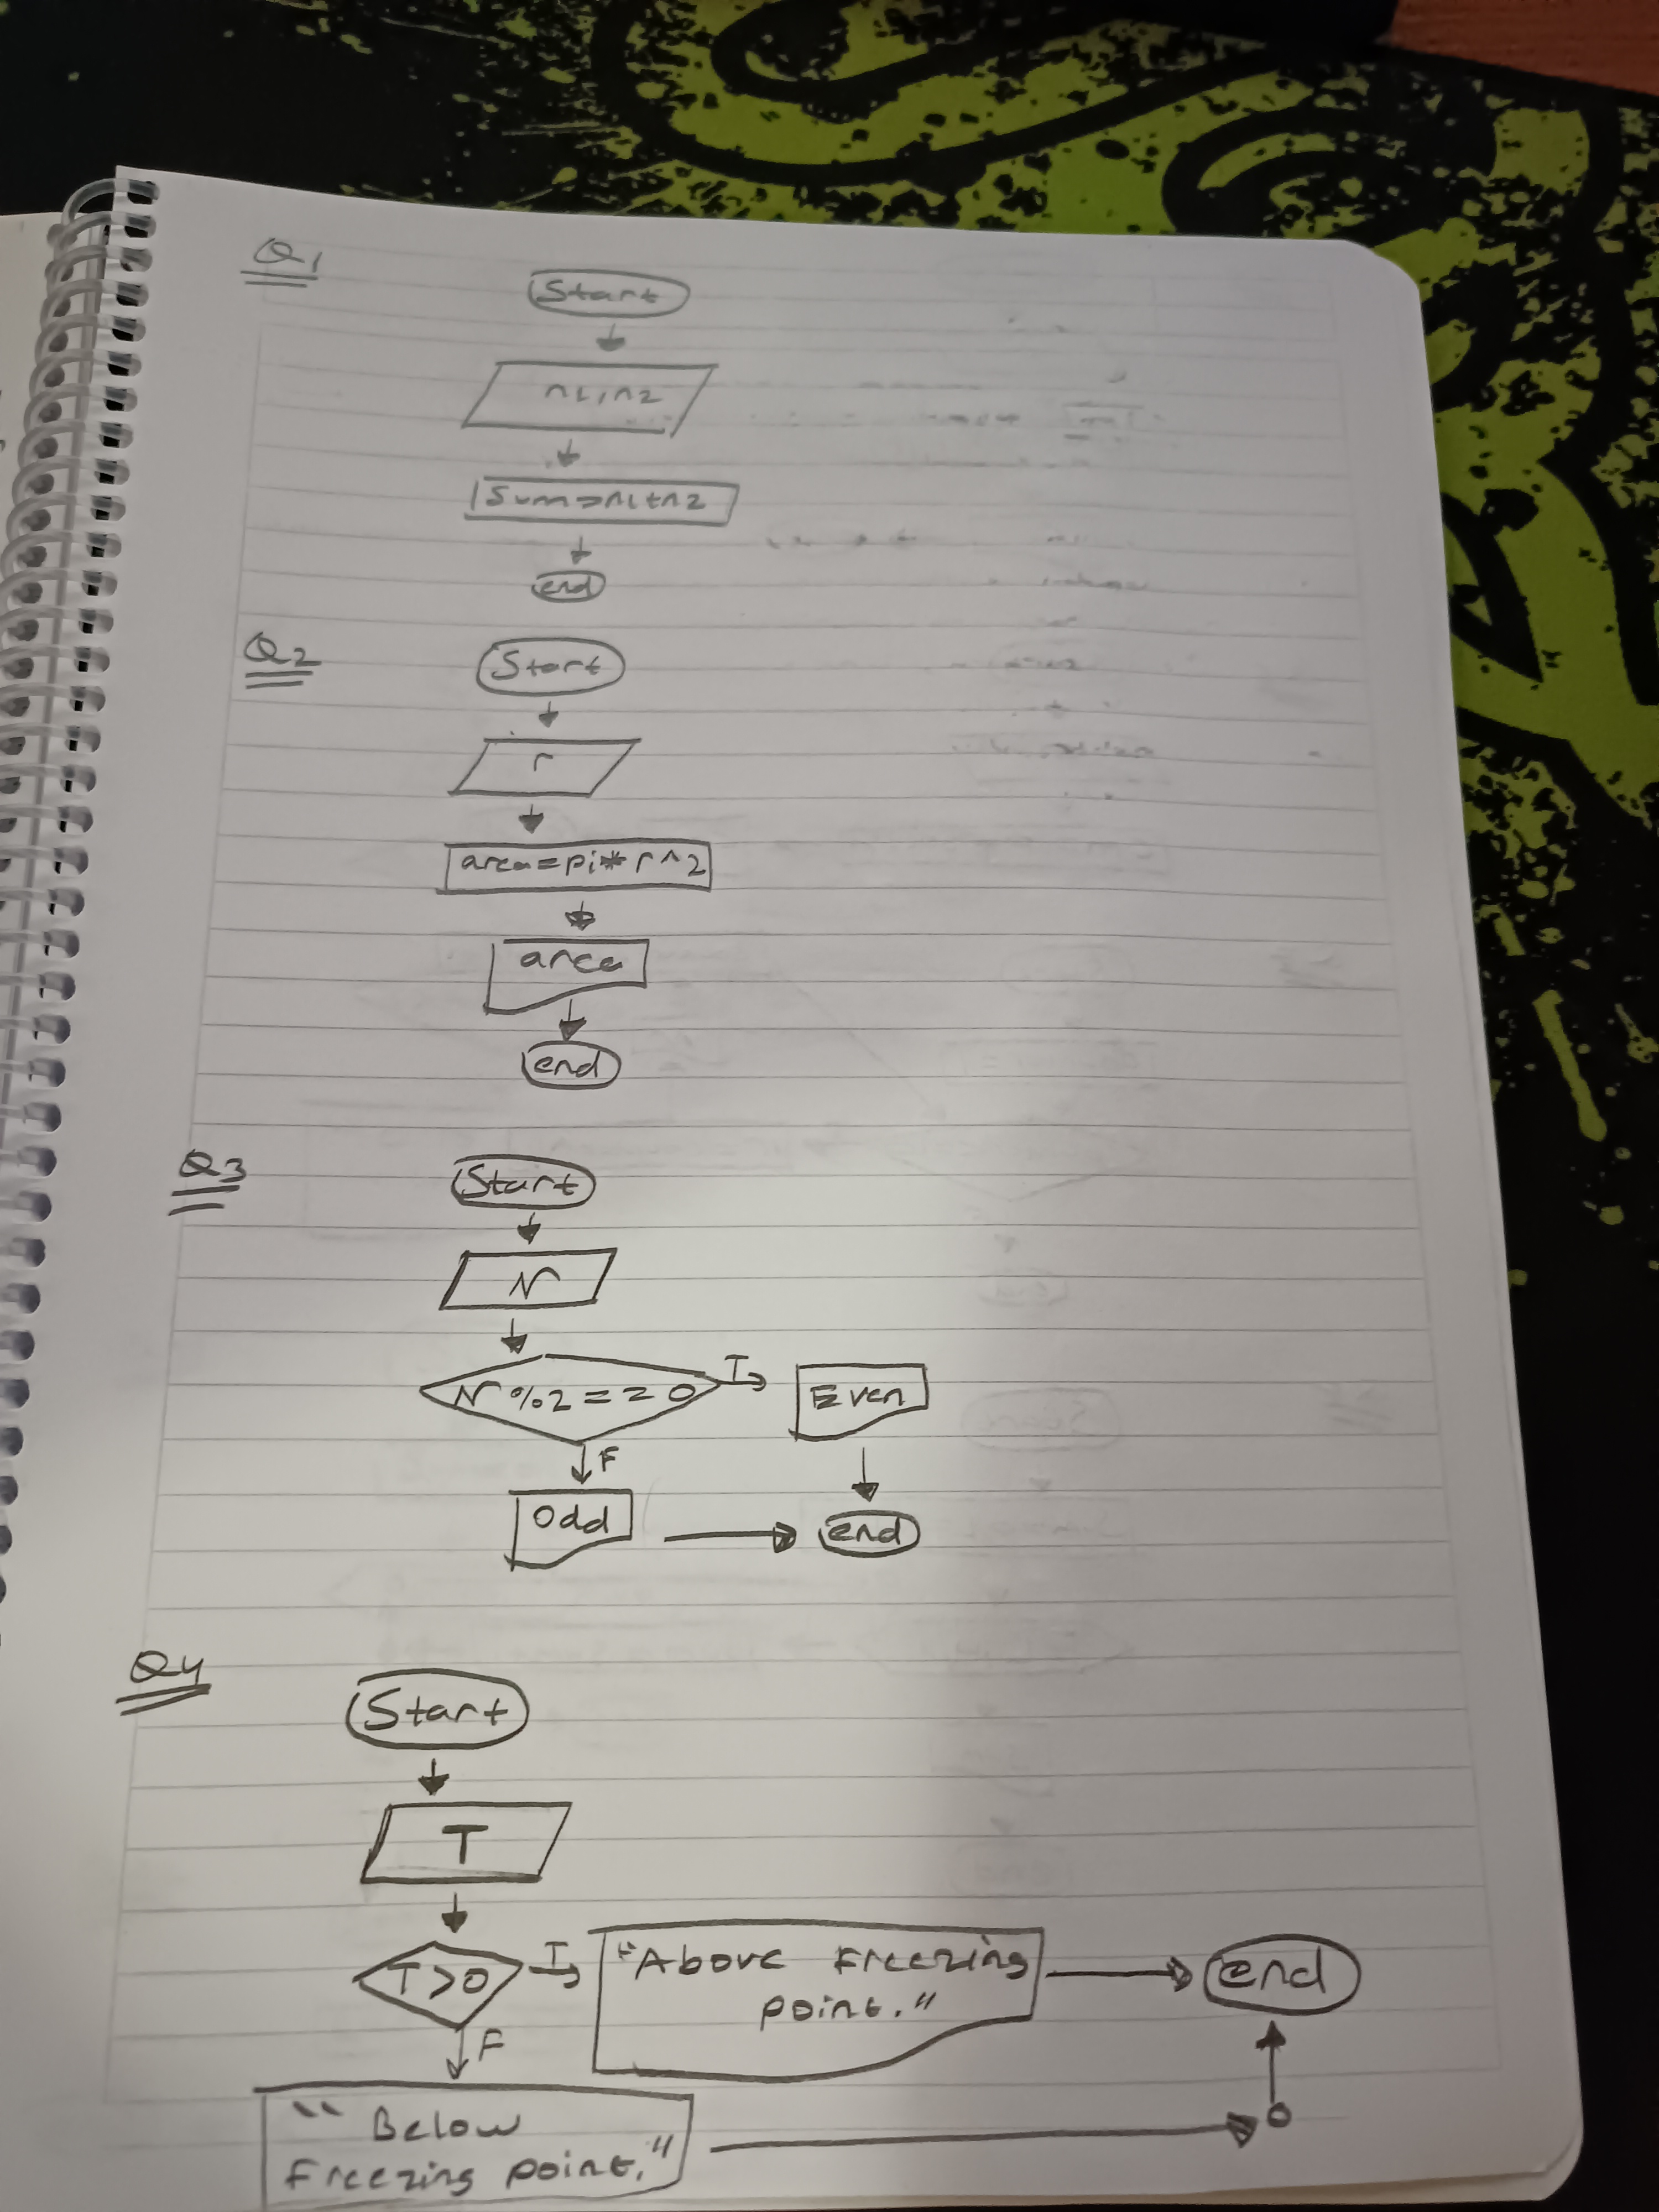 Q1
Start
n1,n2
Sum=n1+n2
end
Q2
Start
r
area=pi*r^2
area
end
Q3
Start
N
N%2==0
T
Even
F
Odd
end
Q4
Start
T
T>0
T
"Above Freezing
point."
end
F
"Below
Freezing point."